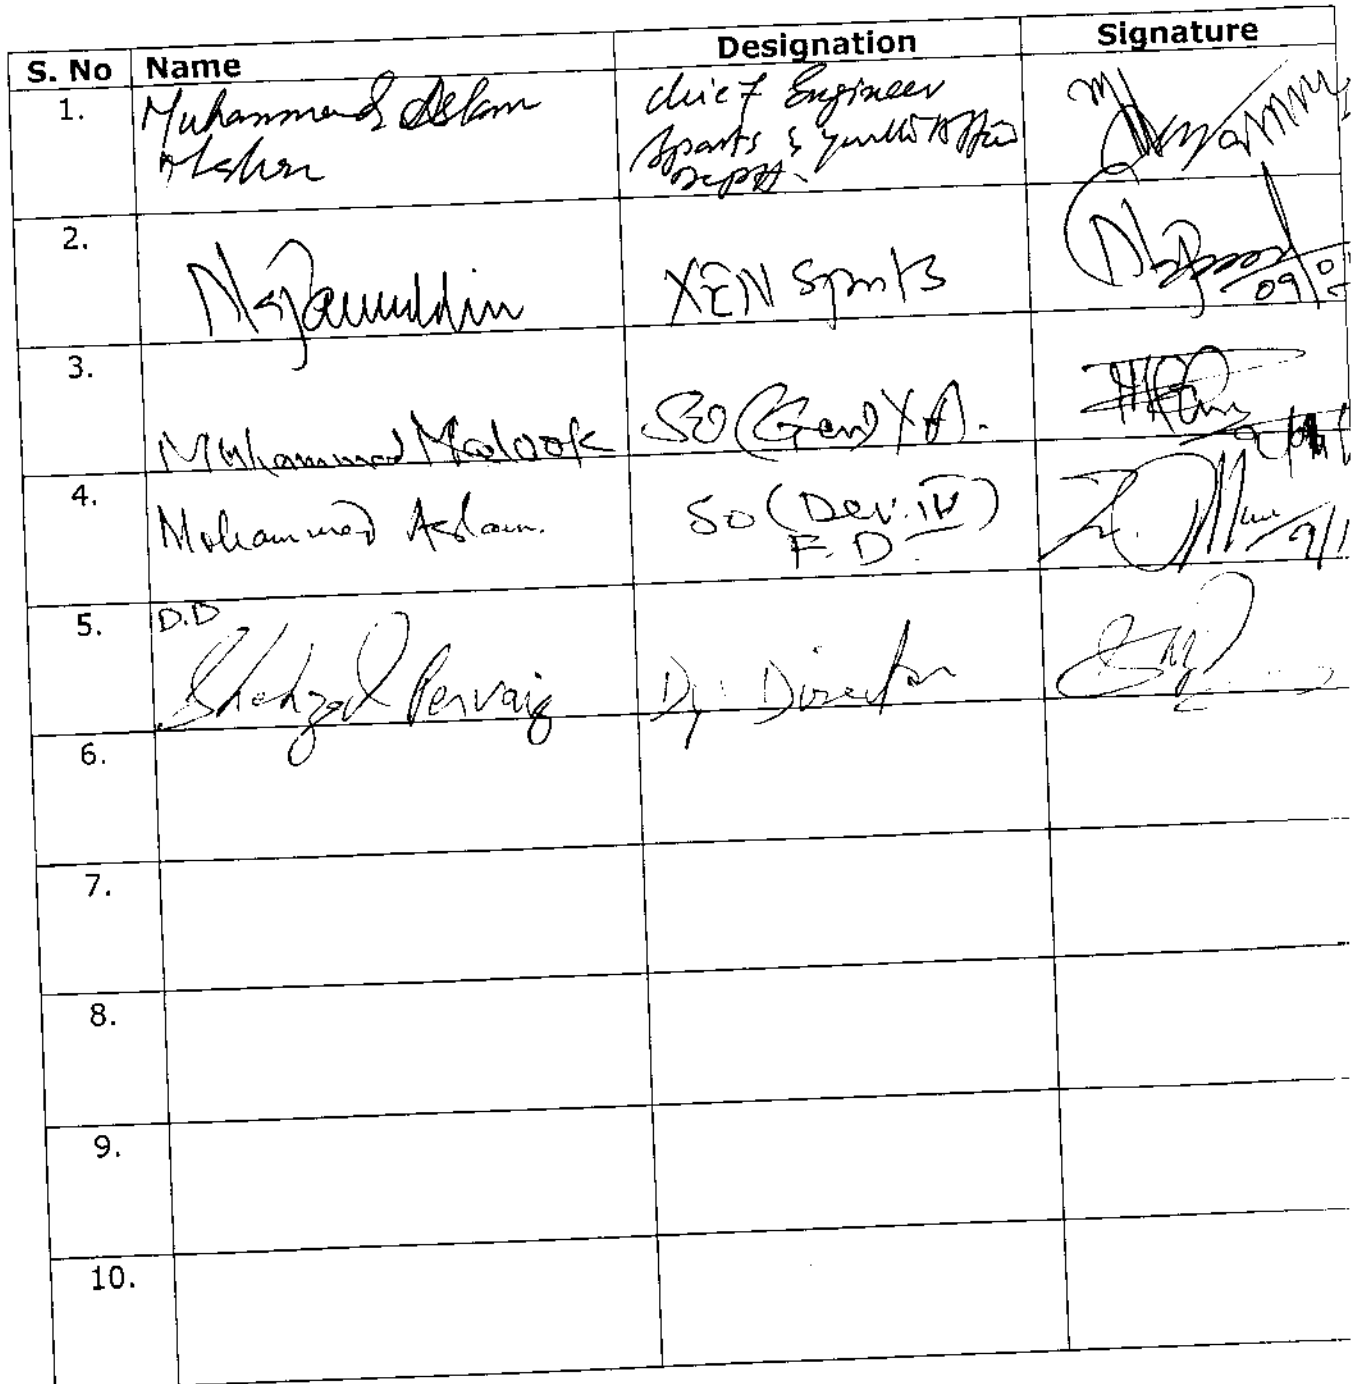 S. No Name Designation Signature
1. Muhammad Aslam chief Engineer
Sports & youth Affairs
Deptt.
2. Najamuddin XEN Sports
09/0
3. Muhammad Malook SO (Gen) YA.
4. Mohammed Aslam. SO (Dev: IV)
F.D
9/1
5. D.D
Shahzad Pervaiz Dy Director
6.
7.
8.
9.
10.